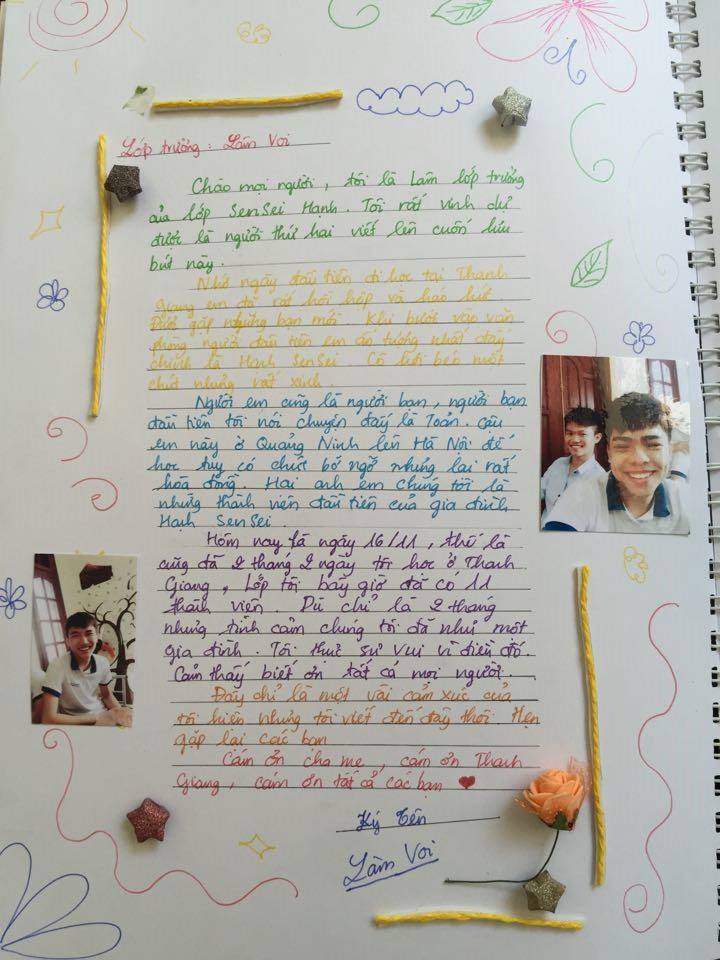 Lớp trưởng : Lâm Voi
Chào mọi người, tôi là Lâm lớp trưởng
của lớp SenSei Hạnh. Tôi rất vinh dự
được là người thứ hai viết lên cuốn lưu
bút này.
Nhớ ngày đầu tiên đi học tại Thanh
Giang em đã rất hồi hộp và háo hức.
Được gặp những bạn mới. Khi bước vào văn
phòng người đầu tiên em ấn tượng nhất đấy
chính là Hạnh SenSei. Cô hơi béo một
chút nhưng rất xinh.
Người em cũng là người bạn, người bạn
đầu tiên tôi nói chuyện đấy là Toản. Cậu
em này ở Quảng Ninh lên Hà Nội để
học tuy có chút bỡ ngỡ nhưng lại rất
hòa đồng. Hai anh em chúng tôi là
những thành viên đầu tiên của gia đình
Hạnh SenSei.
Hôm nay là ngày 16/11, thế là
cũng đã 2 tháng 2 ngày tôi học ở Thanh
Giang, Lớp tôi bây giờ đã có 11
thành viên. Dù chỉ là 2 tháng
nhưng tình cảm chúng tôi đã như một
gia đình. Tôi thực sự vui vì điều đó.
Cảm thấy biết ơn tất cả mọi người.
Đây chỉ là một vài cảm xúc của
tôi hiện nhưng tôi viết đến đây thôi. Hẹn
gặp lại các bạn
Cảm ơn cha mẹ, cảm ơn Thanh
Giang, cảm ơn tất cả các bạn ❤
Ký tên
Lâm Voi